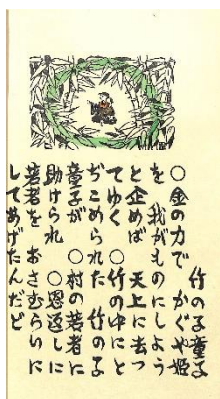 竹の子童子
○金の力で かぐや姫
を 我がものにしよう
と企めば 天上に去っ
てゆく ○竹の中にと
ぢこめられた 竹の子
童子が ○村の若者に
助けられ ○恩返しに
若者を おさむらいに
してあげたんだど